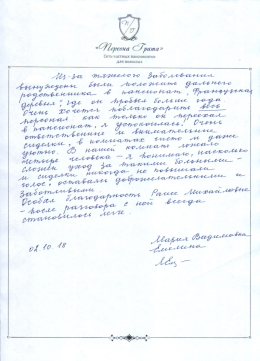 «Персона Грата»
Сеть частных пансионатов
для пожилых
Из-за тяжелого заболевания
вынуждены были положить дальнего
родственника в пансионат „Французская
деревня", где он пробыл больше года
Очень хочется поблагодарить весь
персонал как только он переехал
в пансионат, я успокоилась! Очень
ответственные и внимательные
сиделки, в комнатах чисто и даже
уютно. В нашей комнате лежало
четыре человека – я понимаю, насколько
сложен уход за такими больными –
и сиделки никогда не повышали
голос, оставаясь доброжелательными и
заботливыми
Особая благодарность Раисе Михайловне
– после разговора с ней всегда
становилось легче.
02.10.18
Мария Вадимовна